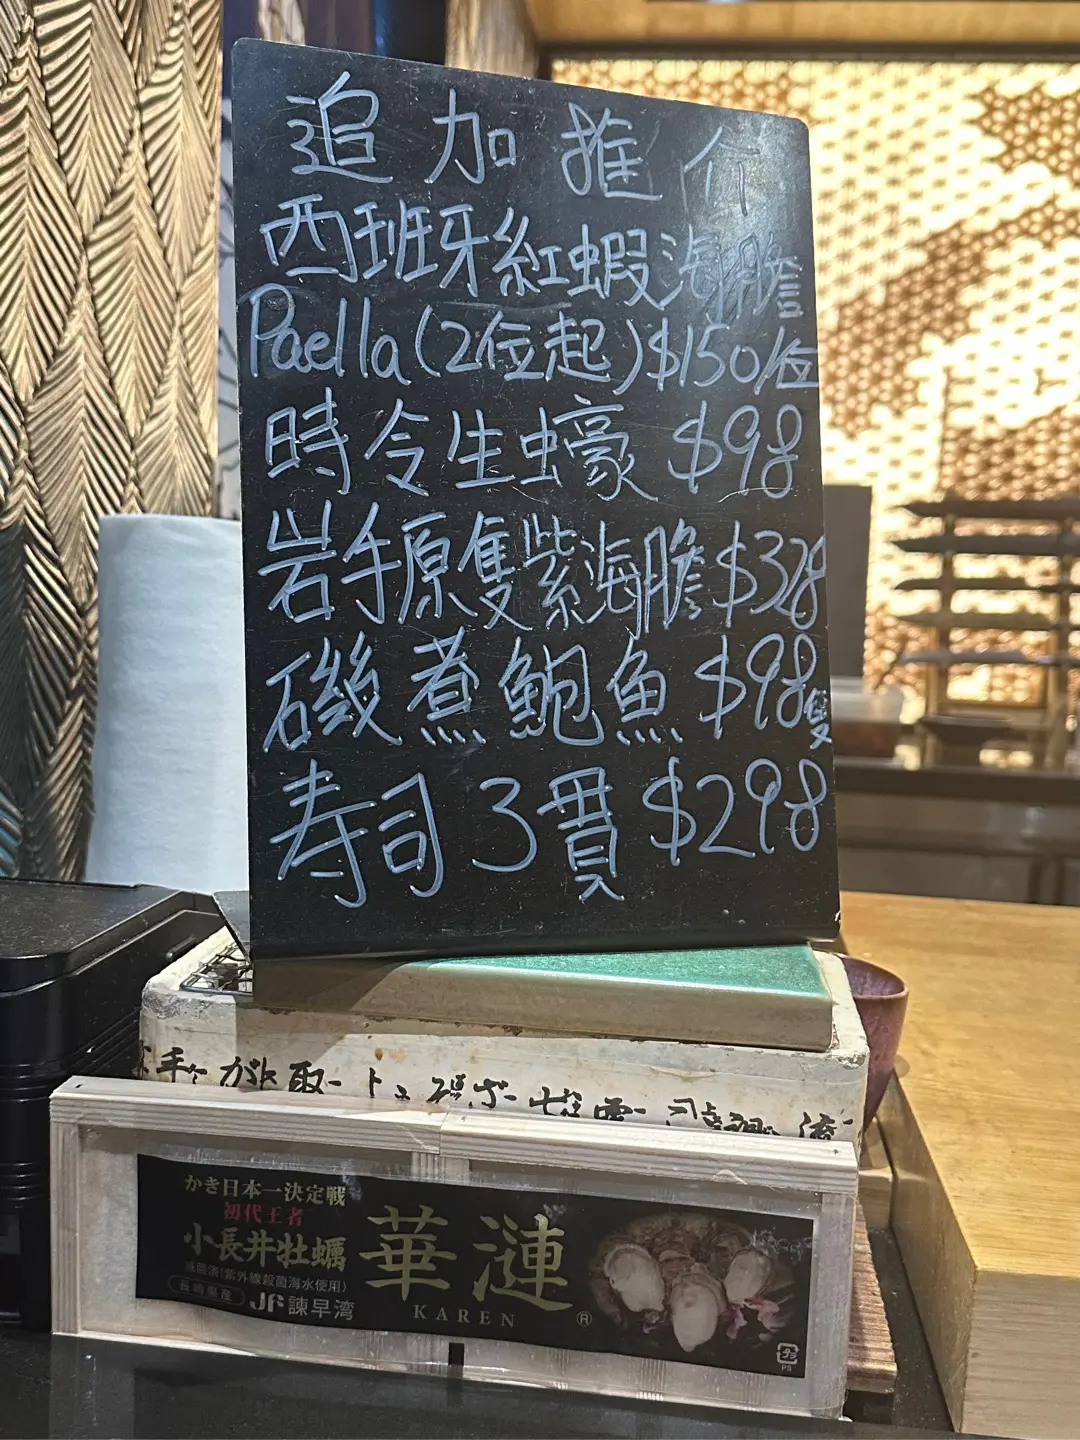 追加推介
西班牙紅蝦海膽
Paella(2位起)$150/位
時令生蠔 $98
岩手原隻紫海膽 $328
磯煮鮑魚 $98隻
寿司3貫 $298
かき日本一決定戦
初代王者
小長井牡蠣
滅菌済(紫外線殺菌海水使用)
長崎県産 JF諫早湾
華漣
KAREN ®
プラ
PS